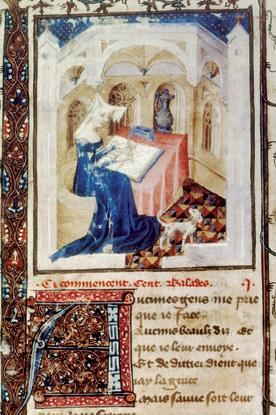 Ci commencent. Cent. Balades. I.
Aucunes gens me prie
que ie face.
Aucuns beaulz diz Et
que ie leur enuoye.
Et de dittier dient que
iay la grace
Mais sauue soit leur